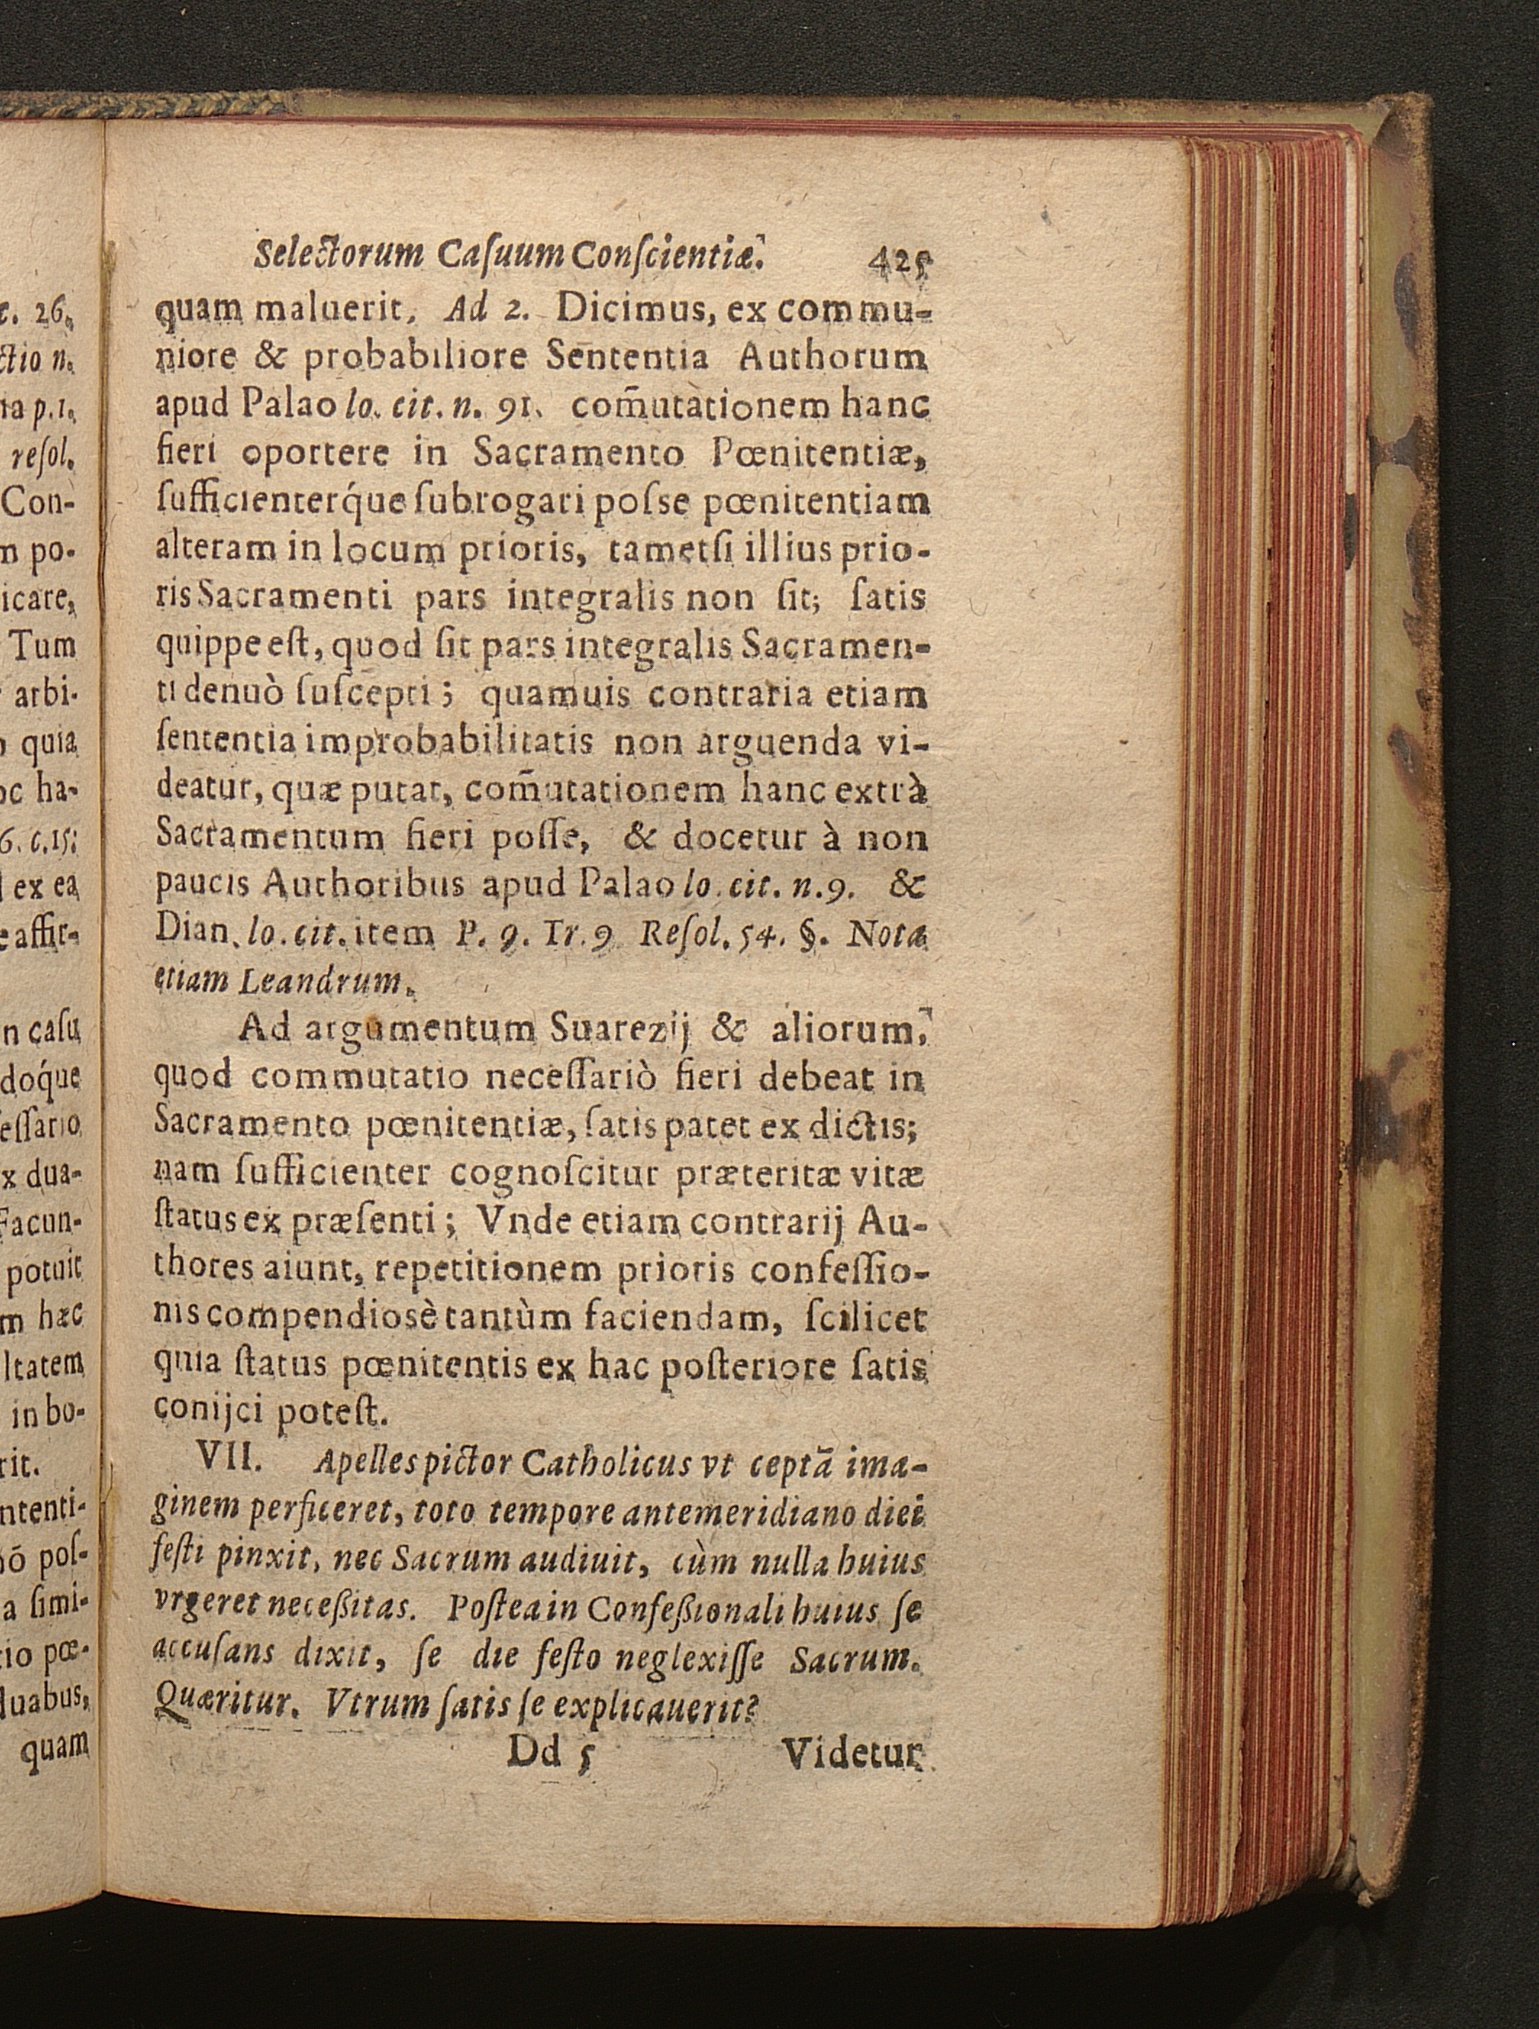 c. 26.
ctio n.
ta p.1.
resol.
Con-
m po-
icare,
Tum
arbi-
quia
oc ha-
6. c.15:
ex ea
e affir-
n caſu
doq́ue
eſſario
x dua-
Facun-
potuit
m hæc
ltatem
in bo-
rit.
ntenti-
nō poſ-
a ſimi-
tio pœ-
duabus,
quam
Selectorum Caſuum Conſcientiæ. 425
quam maluerit. Ad 2. Dicimus, ex commu-
niore & probabiliore Sententia Authorum
apud Palao lo. cit. n. 91. com̃utationem hanc
fieri oportere in Sacramento Pœnitentiæ,
ſufficienterq́ue ſubrogari poſse pœnitentiam
alteram in locum prioris, tametſi illius prio-
ris Sacramenti pars integralis non ſit; ſatis
quippe eſt, quod ſit pars integralis Sacramen-
ti denuò ſuſcepti; quamuis contraria etiam
ſententia improbabilitatis non arguenda vi-
deatur, quæ putat, com̃utationem hanc extrà
Sacramentum fieri poſſe, & docetur à non
paucis Authoribus apud Palao lo. cit. n.9. &
Dian. lo. cit. item P. 9. Tr. 9 Reſol. 54. §. Nota
etiam Leandrum.
Ad argumentum Suarezij & aliorum,
quod commutatio neceſſariò fieri debeat in
Sacramento pœnitentiæ, ſatis patet ex dictis;
nam ſufficienter cognoſcitur præteritæ vitæ
ſtatus ex præſenti; Vnde etiam contrarij Au-
thores aiunt, repetitionem prioris confeſſio-
nis compendiosè tantùm faciendam, ſcilicet
quia ſtatus pœnitentis ex hac poſteriore ſatis
conijci poteſt.
VII. Apelles pictor Catholicus vt ceptā ima-
ginem perficeret, toto tempore antemeridiano diei
feſti pinxit, nec Sacrum audiuit, cùm nulla huius
vrgeret neceßitas. Poſtea in Confeßionali huius ſe
accuſans dixit, ſe die feſto neglexiſſe Sacrum.
Quæritur. Vtrum ſatis ſe explicauerit?
Dd 5 Videtur